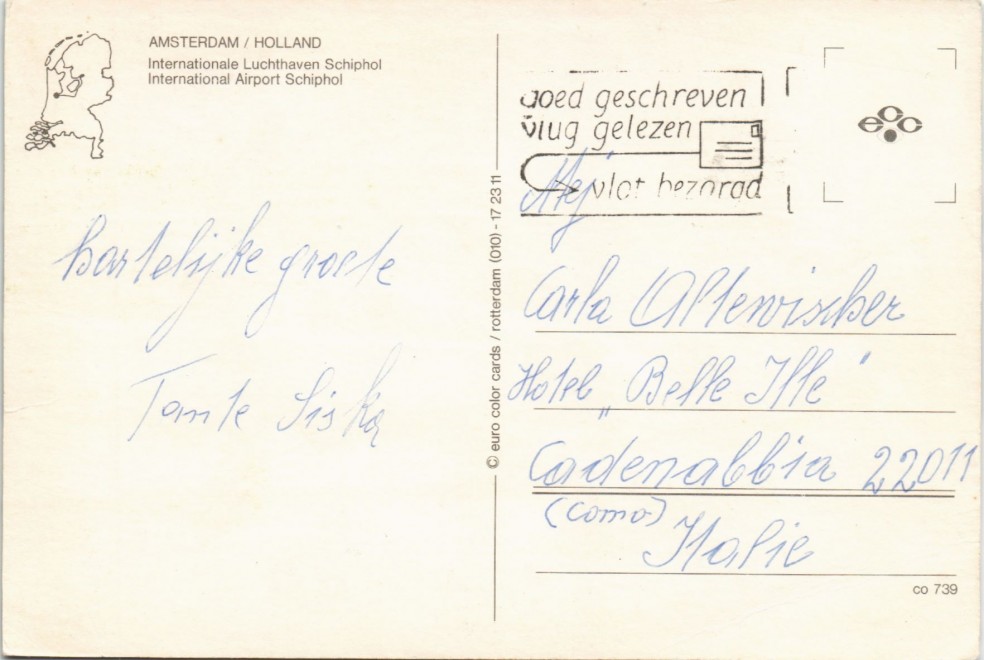 AMSTERDAM / HOLLAND
Internationale Luchthaven Schiphol
International Airport Schiphol
hartelijke groete
Tante Siska
© euro color cards / rotterdam (010) - 17 23 11
goed geschreven
vlug gelezen
vlot bezorgd
ecc
Mej
Carla Altevischer
Hotel „Belle Ille"
Cadenabbia 22011
(Como)
Italie
co 739